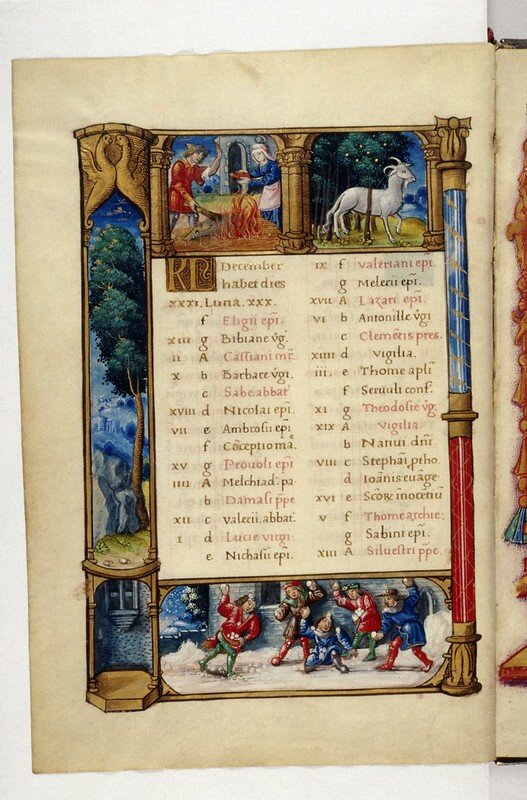 KL December
habet dies
XXXI. Luna. XXX.
f Eligii epi.
XIII g Bibiane vg.
II A Cassiani mr̄.
X b Barbare vgi.
c Sabe abbat
XVIII d Nicolai epi.
VII e Ambrosii epi.
f Cōceptio ma.
XV g Prouoli epi
IIII A Melchiad. pa.
b Damasi ppe
XII c Valerii. abbat.
I d Lucie virgi.
e Nichasii epi.
IX f Valeriani epi.
g Melerii epi.
XVII A Lazari epi.
VI b Antonille vgi
c Clemētis pres.
XIIII d vigilia.
III. e Thome apli
f Seruuli conf.
XI g Theodosie vg.
XIX A Vigilia.
b Natiui dni.
VIII c Stephai ptho.
d Ioānis euāge
XVI e Scorꝝ inocētiū
V f Thome archie:
g Sabini epi.
XIII A Siluestri ppe.